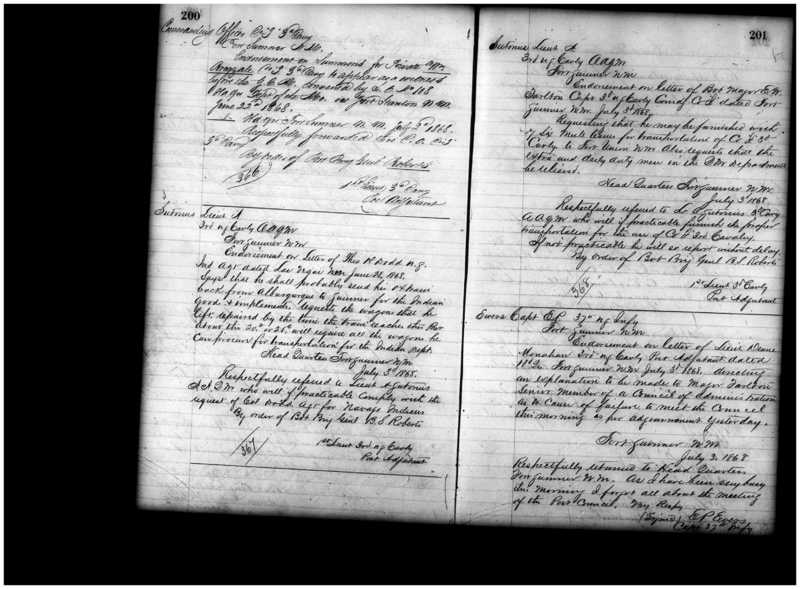 200
Commanding Officer Co I 3d Cavy
Fort Sumner N.M.
Endorsement on Summons for Private Wm
Co I 3d Cavy to appear as a witness
before the G.C.M. convened by S.O. No 118
Hd. Qrs Dist of New Mex. on Fort Stanton N.M.
June 22d 1868.
Hd. Qrs Fort Sumner N.M. July 3d 1868.
Respectfully forwarded Co. I
3d Cavy
By order of Bvt Brig Genl Roberts
366
1st Lieut 3d Cavy
Post Adjutant
Lieut A
3rd U.S. Cavly A.A.Q.M.
Fort Sumner N.M.
Endorsement on Letter of Theo H Dodd U.S.
Ind Agt dated Las Vegas N.M. June 28, 1868.
Says that he shall probably send his ox train
back from Albuquerque to Sumner for the Indian
Goods & implements. Requests the wagons that he
left, repaired by the time the train reaches this Post
About the 20th or 25th will require all the wagons he
Can procure for transportation for the Indian Dept.
Head Quarters Fort Sumner N.M.
July 3d 1868.
Respectfully referred to Lieut
who will if practicable Comply with the
request of Col Dodd Agt for Navajo Indians
By order of Bvt Brig Genl B.S. Roberts
367
1st Lieut 3rd U.S. Cavly
Post Adjutant
201
Lieut A
3rd U.S. Cavly A.A.Q.M.
Fort Sumner N.M.
Endorsement on letter of Bvt Major E.W.
Tarlton Capt 3d U.S. Cavly Comdg Co E dated Fort
Sumner N.M. July 3d 1868.
Requesting that he may be furnished with
Six Mule teams for transportation of Co E 3d
Cavly to Fort Union N.M. Also requests that the
extra and daily duty men in the Q.M. Department
be relieved.
Head Quarters Fort Sumner N.M.
July 3d 1868.
Respectfully referred to Lt 3d Cavy
A.A.Q.M. who will if practicable furnish the proper
transportation for the use of Co E 3rd Cavalry
If not practicable he will so report without delay
By Order of Bvt Brig Genl B.S. Roberts
368
1st Lieut 3d Cavly
Post Adjutant
Ewers Capt E.P. 37th U.S. Infy
Fort Sumner N.M.
Endorsement on letter of Lieut Deane
Monahan 3rd U.S. Cavly Post Adjutant dated
Hd Qrs Fort Sumner N.M. July 3d 1868. desiring
an explanation to be made to Major Tarlton
Senior Member of a Council of administration
as to Cause of failure to meet the Council
this morning as per adjournment yesterday.
Fort Sumner N.M.
July 3, 1868
Respectfully returned to Head Quarters
Fort Sumner N.M. As I have been very busy
this Morning I forgot all about the meeting
of the Post Council. Very Respy
(Signed) E.P. Ewers
Capt 37th Infy